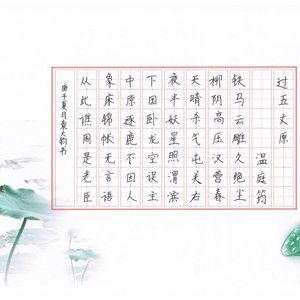 过五丈原
温庭筠
铁马云雕久绝尘
柳阴高压汉营春
天晴杀气屯关右
夜半妖星照渭滨
下国卧龙空误主
中原逐鹿不因人
象床锦帐无言语
从此谯周是老臣
庚子夏月袁大钧书